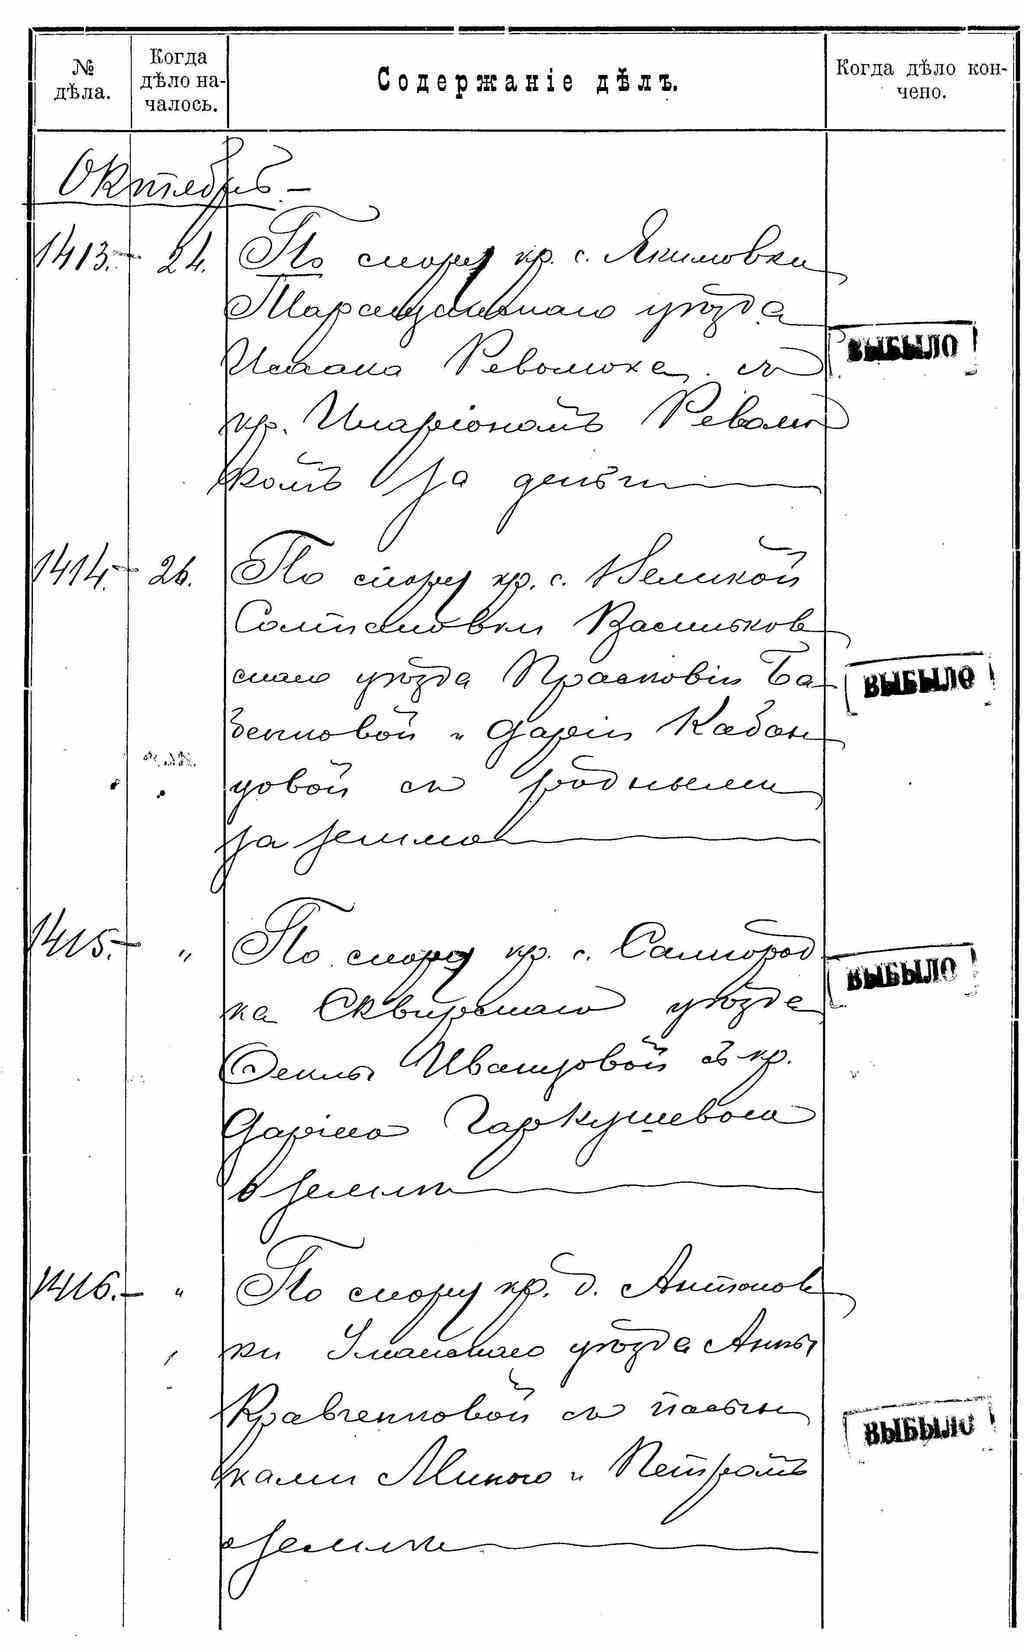 № дѣла.
Когда дѣло началось.
Содержаніе дѣлъ.
Когда дѣло кончено.
Октябрь.
1413. 24. По спору кр. с. Якимовки
Таращанскаго уѣзда
Исаака Революка съ
кр. Иларіономъ Револю
комъ за деньги
ВЫБЫЛО
1414. 26. По спору кр. с. Великой
Солтановки Васильков
скаго уѣзда Прасковіи Ба
бенковой и Даріи Кабан
цовой съ родными
за землю
ВЫБЫЛО
1415. „ По спору кр. с. Самгород
ка Сквирскаго уѣзда
Феклы Иванцовой съ кр.
Даріею Гаркушевою
о землѣ
ВЫБЫЛО
1416. „ По спору кр. д. Антонов
ки Уманскаго уѣзда Анны
Кравченковой съ пасын
ками Микою и Петромъ
о землѣ
ВЫБЫЛО